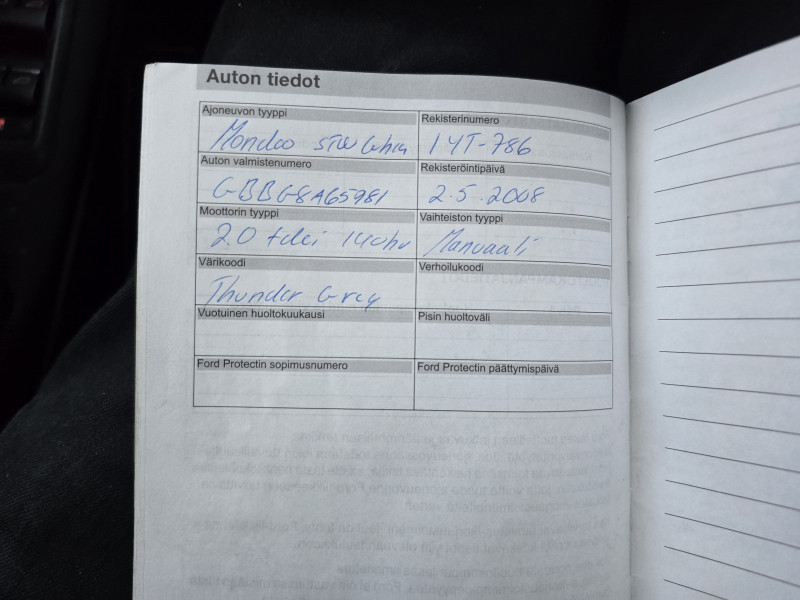 Auton tiedot
Ajoneuvon tyyppi
Rekisterinumero
Mondeo STW Ghia
IYT-786
Auton valmistenumero
Rekisteröintipäivä
GBBG8A65981
2.5.2008
Moottorin tyyppi
Vaihteiston tyyppi
2.0 tdci 140hv
Manuaali
Värikoodi
Verhoilukoodi
Thunder Grey
Vuotuinen huoltokuukausi
Pisin huoltoväli
Ford Protectin sopimusnumero
Ford Protectin päättymispäivä